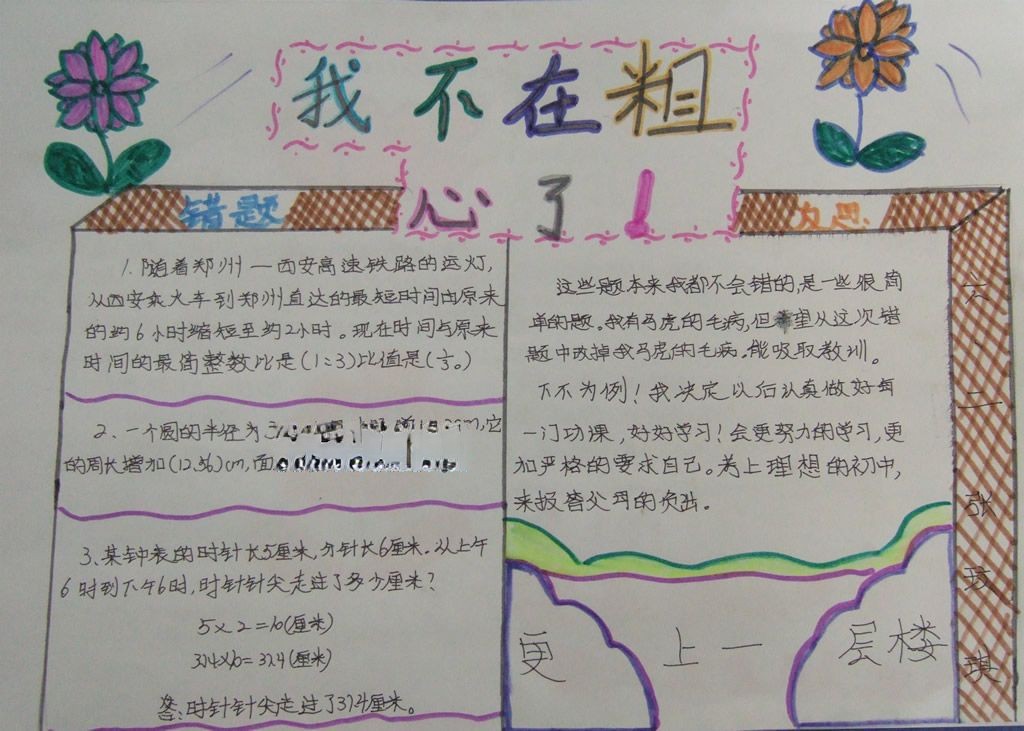 我不在粗
心了！
错题
1.随着郑州一西安高速铁路的运灯,
从西安乘火车到郑州直达的最短时间由原来
的约6小时缩短至约2小时。现在时间与原来
时间的最简整数比是(1:3)比值是(⅓。)
2、一个圆的半径为
它
的周长增加(12.56)cm,面
3、某钟表的时针长5厘米,分针长6厘米.从上午
6时到下午6时,时针针尖走过了多少厘米?
5×2=10(厘米)
3.14×10=31.4(厘米)
答:时针针尖走过了31.4厘米。
反思
这些题本来我都不会错的,是一些很简
单的题。我有马虎的毛病,但希望从这次错
题中改掉我马虎的毛病。能吸取教训。
下不为例!我决定以后认真做好每
一门功课,好好学习!会更努力的学习,更
加严格的要求自己。考上理想的初中,
来报答父母的负出。
更上一层楼
六、二张玟琪